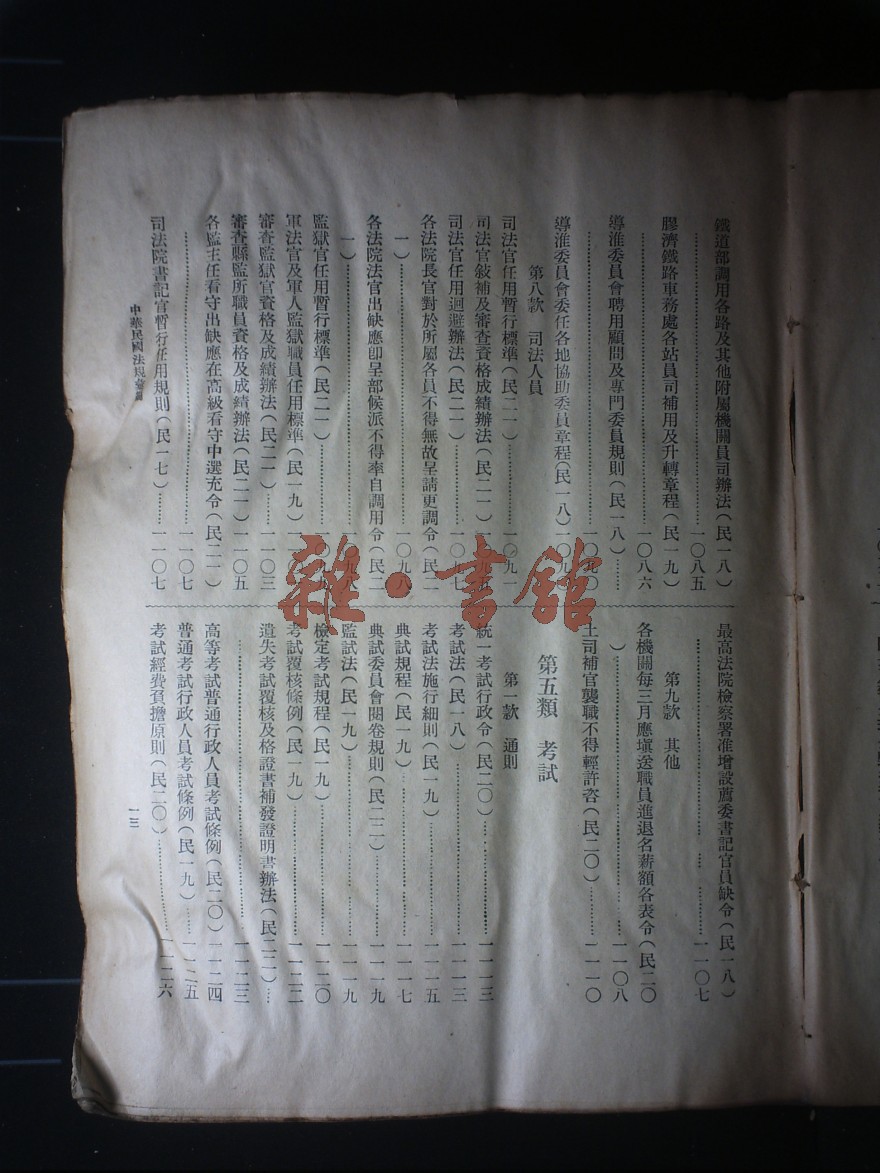 鐵道部調用各路及其他附屬機關員司辦法(民一八)
……一〇八五
膠濟鐵路車務處各站員司補用及升轉章程(民一九)
……一〇八六
導淮委員會聘用顧問及專門委員規則(民一八)……
……一〇九〇
導淮委員會委任各地協助委員章程(民一八)一〇九〇
第八款 司法人員
司法官任用暫行標準(民二一)……一〇九一
司法官敍補及審查資格成績辦法(民二一)
司法官任用迴避辦法(民二一)……一〇九七
各法院長官對於所屬各員不得無故呈請更調令(民二
一)……一〇九八
各法院法官出缺應卽呈部候派不得率自調用令(民二
一)……一〇九八
監獄官任用暫行標準(民二一)……
軍法官及軍人監獄職員任用標準(民一九)
審查監獄官資格及成績辦法(民二一)……一一〇三
審查縣監所職員資格及成績辦法(民二一)一一〇五
各監主任看守出缺應在高級看守中選充令(民二一)
……一一〇七
司法院書記官暫行任用規則(民一七)……一一〇七
最高法院檢察署准增設薦委書記官員缺令(民一八)
……一一〇七
第九款 其他
各機關每三月應塡送職員進退名薪額各表令(民二〇
)……一一〇八
土司補官襲職不得輕許咨(民二〇)……一一一〇
第五類 考試
第一款 通則
統一考試行政令(民二〇)……一一一三
考試法(民一八)……一一一三
考試法施行細則(民一九)……一一一五
典試規程(民一九)……一一一七
典試委員會閱卷規則(民二二)……一一一九
監試法(民一九)……一一一九
檢定考試規程(民一九)……一一二〇
考試覆核條例(民一九)……一一二二
遺失考試覆核及格證書補發證明書辦法(民二二)…
……一一二三
高等考試普通行政人員考試條例(民二〇)一一二四
普通考試行政人員考試條例(民一九)……一一二五
考試經費負擔原則(民二〇)……一一二六
中華民國法規彙編
一三
雜·書館